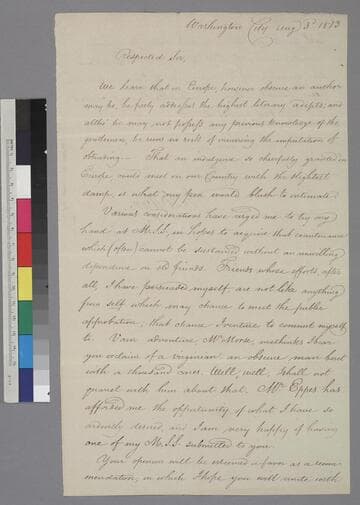 Washington City Aug 5th 1813
Respected Sir,
We learn that in Europe, however obscure an author
may be, he feely addresses the highest literary adepts; and
altho' he may not possess any previous knowledge of the
gentleman, he runs no risk of incurring the imputation of
obtruding. That an indulgence so cheerfully granted in
Europe could meet in our Country with the slightest
damp, is what my pen would blush to intimate.
Various considerations have urged me to try my
hand at M.S.S., in hopes to acquire that countenance
which (often) cannot be sustained without an unwilling
dependence on its friends. Friends whose efforts, after
all, I have persuaded myself are not like anything
from self which may chance to meet the public
approbation, that chance I venture to commit myself
to. Vain adventure Mr Morse, methinks I hear
you exclaim of a virginian an obscure man beset
with a thousand ones. Well, well, I shall not
quarrel with him about that. Mr Eppes has
afforded me the oppertunity of what I have so
ardently desired, and I am very happy of having
one of my M.S.S submitted to you.
Your opinion will be esteemed a favor as a recom-
mendation, in which I hope you will unite with